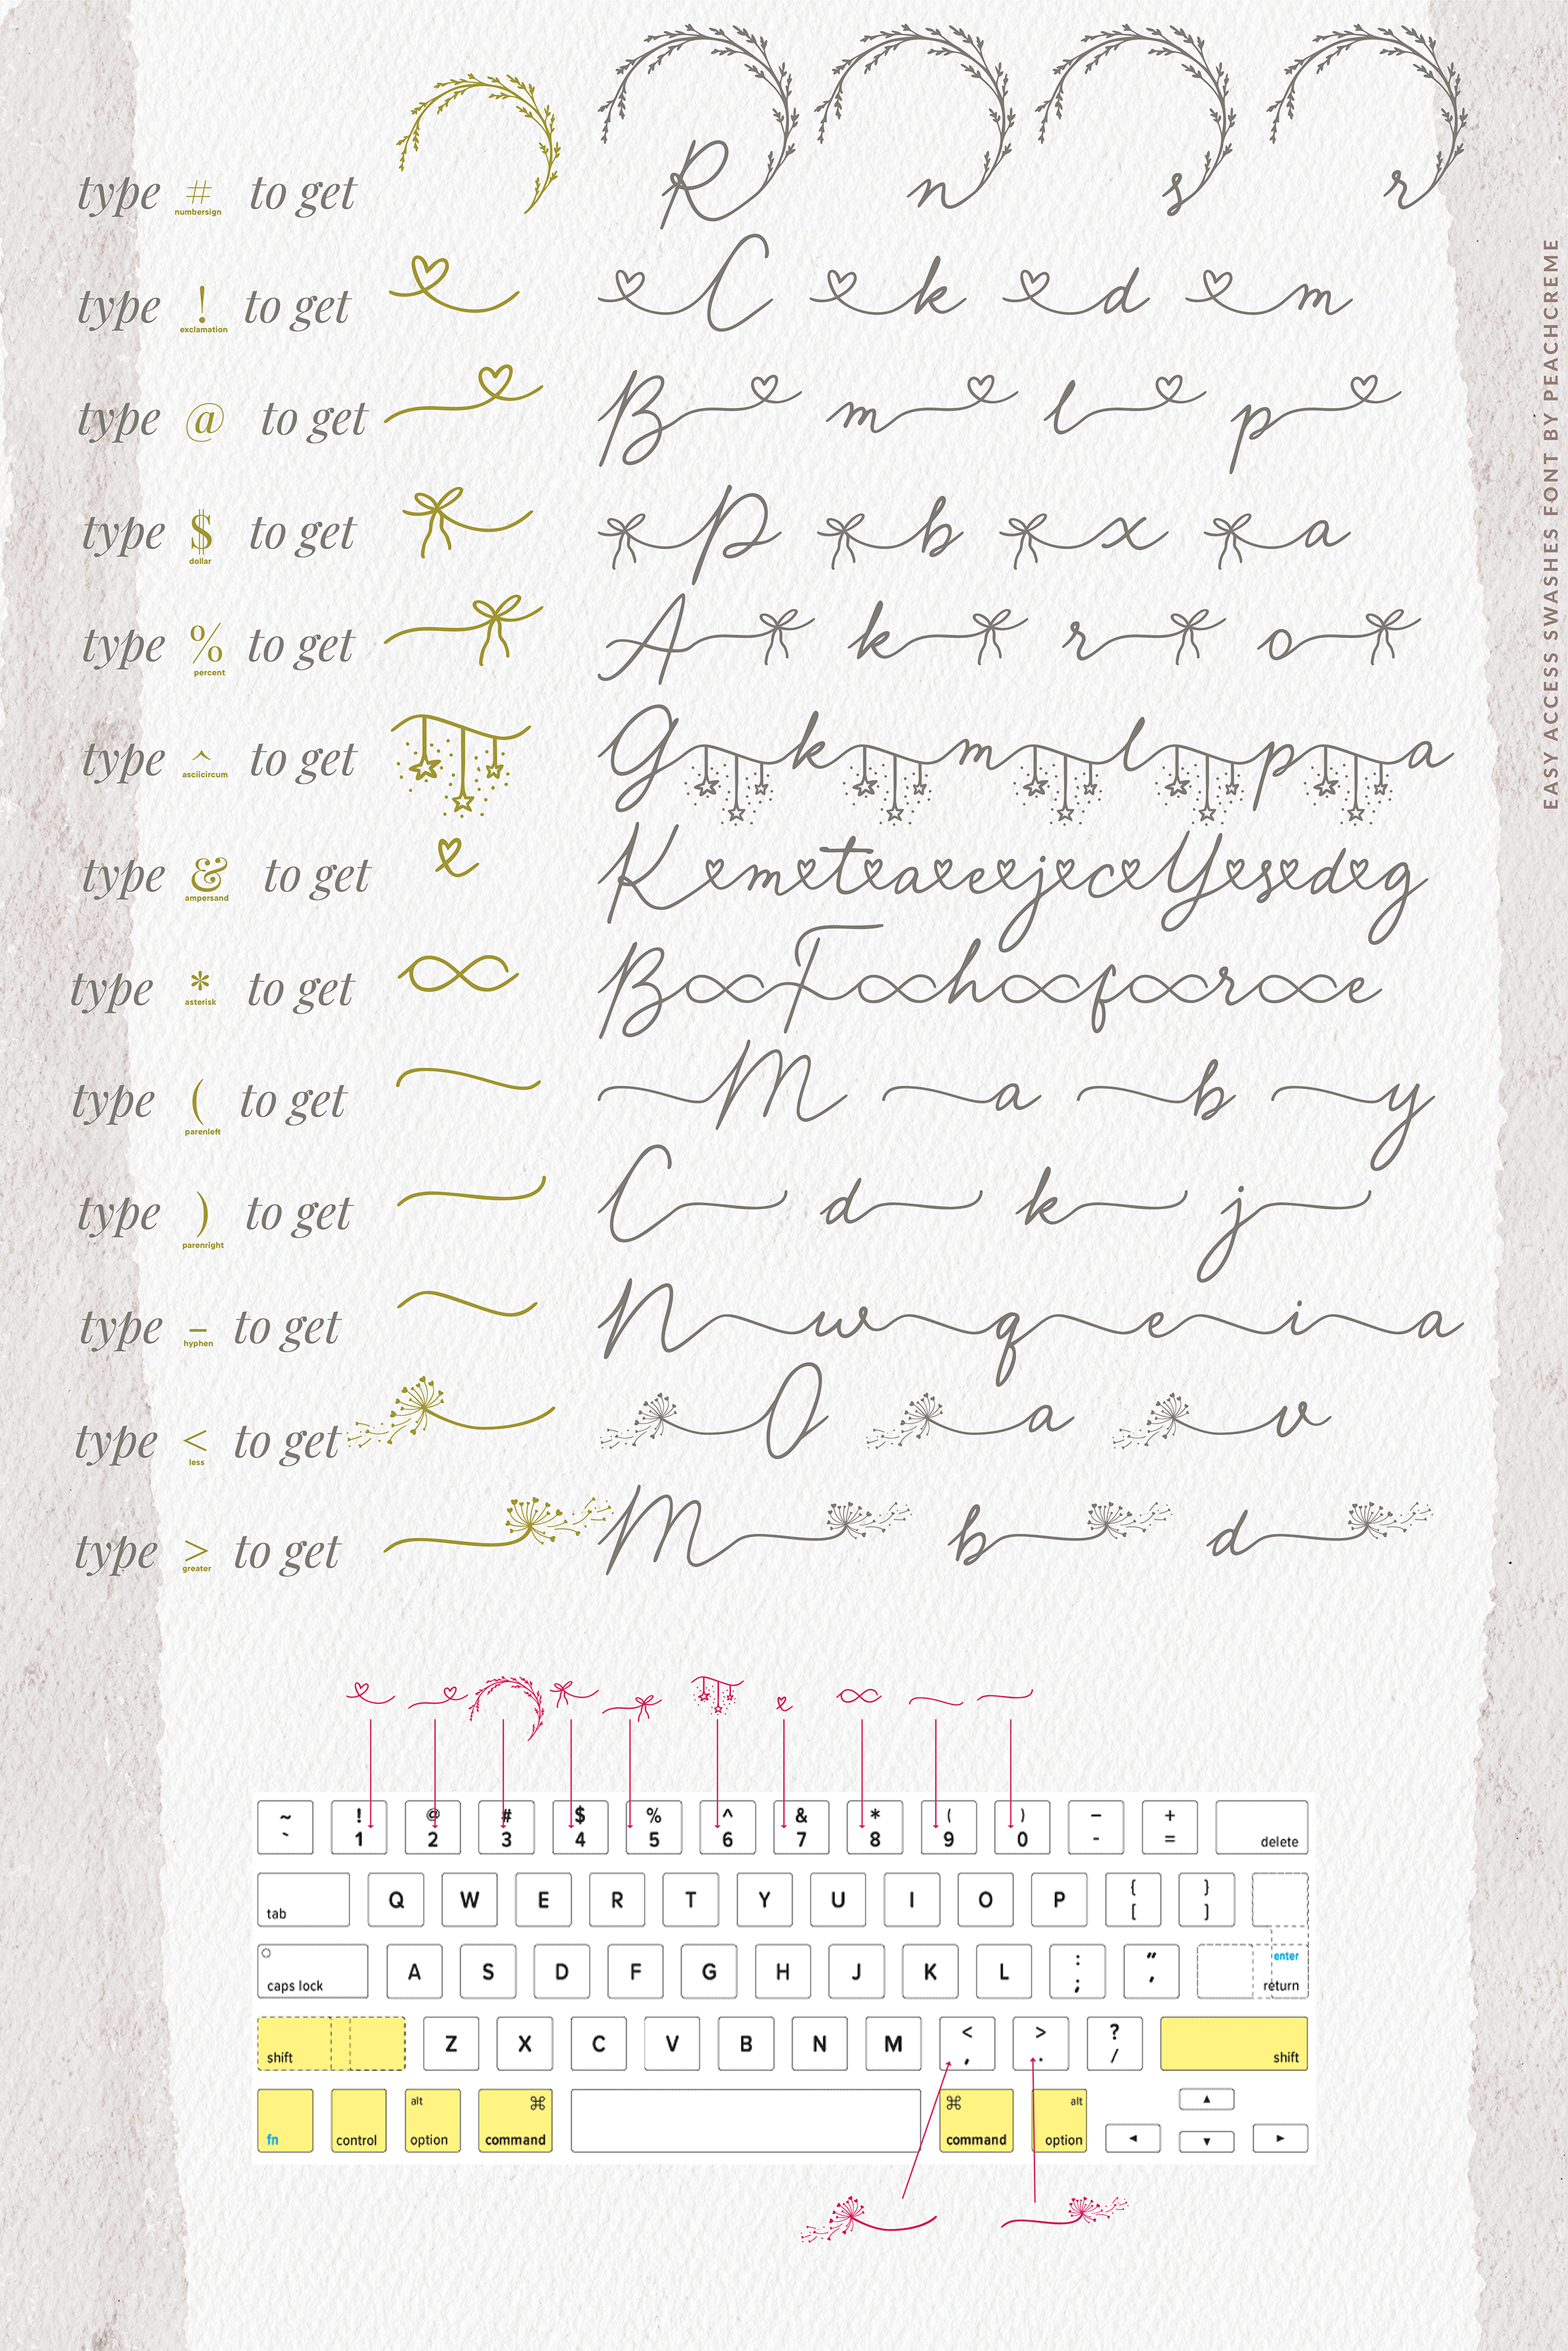 type # to get R n s r
numbersign
type ! to get C k d m
exclamation
type @ to get B m l p
type $ to get P b x a
dollar
type % to get A k r o
percent
type ^ to get G k m l p a
asciicircum
type & to get K m t a e j c Y s d g
ampersand
type * to get B F h f r e
asterisk
type ( to get M a b y
parenleft
type ) to get C d k j
parenright
type - to get N w q e i a
hyphen
type < to get O a v
less
type > to get M b d
greater
EASY ACCESS SWASHES FONT BY PEACHCREME
~ ! @ # $ % ^ & * ( ) – +
` 1 2 3 4 5 6 7 8 9 0 - = delete
tab Q W E R T Y U I O P { [ } ]
caps lock A S D F G H J K L : ; " ' enter return
shift Z X C V B N M < , > . ? / shift
fn control alt option ⌘ command ⌘ command alt option ◄ ▲ ▼ ►